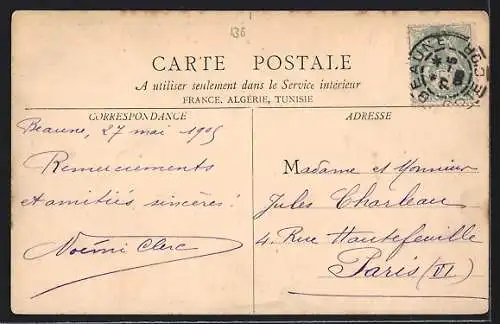 138
CARTE POSTALE
A utiliser seulement dans le Service intérieur
FRANCE, ALGÉRIE, TUNISIE
CORRESPONDANCE
Beaune, 27 mai 1905
Remerciements
et amitiés sincères!
Noémi Clerc
ADRESSE
Madame et Monsieur
Jules Charleau
4. Rue Hautefeuille
Paris (VI)
BEAUNE